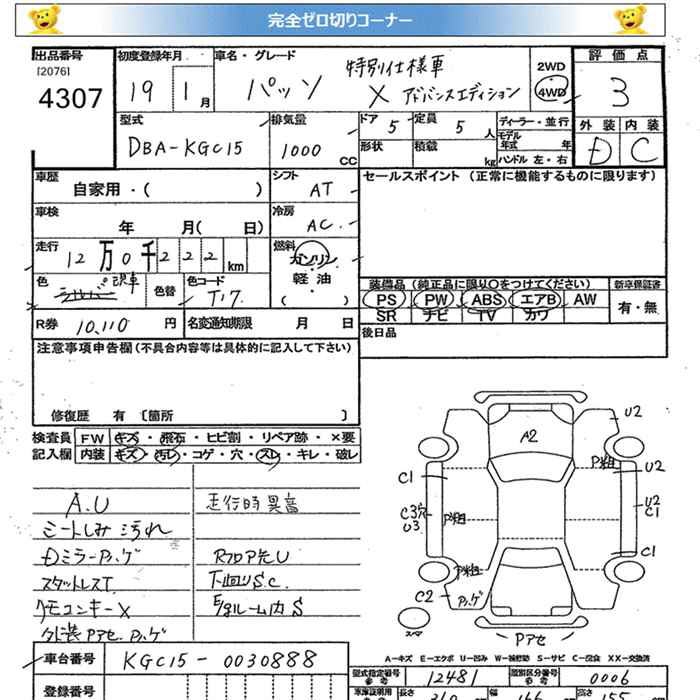 完全ゼロ切りコーナー
出品番号 初度登録年月 車名・グレード 評価点
[2076] 特別仕様車 2WD
4307 19 1月 パッソ X アドバンスエディション 4WD 3
型式 排気量 ドア 5 定員 5人 ディーラー・並行 外装 内装
DBA-KGC15 1000CC 形状 積載 kg モデル年式 年 D C
ハンドル 左・右
車歴 自家用・( ) シフト AT セールスポイント (正常に機能するものに限ります)
車検 年 月( 日) 冷房 AC
走行 12万0千222km 燃料 ガソリン
軽油
( )
色 シルバー 色替 色コード T17 装備品 (純正品に限り○をつけてください) 新車保証書
PS PW ABS エアB AW 有・無
SR ナビ TV カワ
R券 10,110円 名変通知期限 月 日 後日品
注意事項申告欄(不具合内容等は具体的に記入して下さい)
修復歴 有 〔箇所 〕
検査員 FW キズ・飛石・ヒビ割・リペア跡・×要
記入欄 内装 キズ・汚レ・コゲ・穴・スレ・キレ・破レ
A.U 走行時異音
シートしみ汚れ
Dミラーハゲ Rフロア先U
スタットレスT. 下回りS.C.
リモコンキーX ルーム内S
外装Pアセ.ハゲ
A2
U2
P粗
U2
C1
U2
C1
C3穴
U3
P粗
C1
P粗
C2
スペア
Pアセ
A-キズ E-エクボ U-凹み W-補修跡 S-サビ C-腐食 XX-交換済
車台番号 KGC15-0030888 型式指定番号 12481 類別区分番号 0006
登録番号 車庫証明用 長さ 幅 高さ